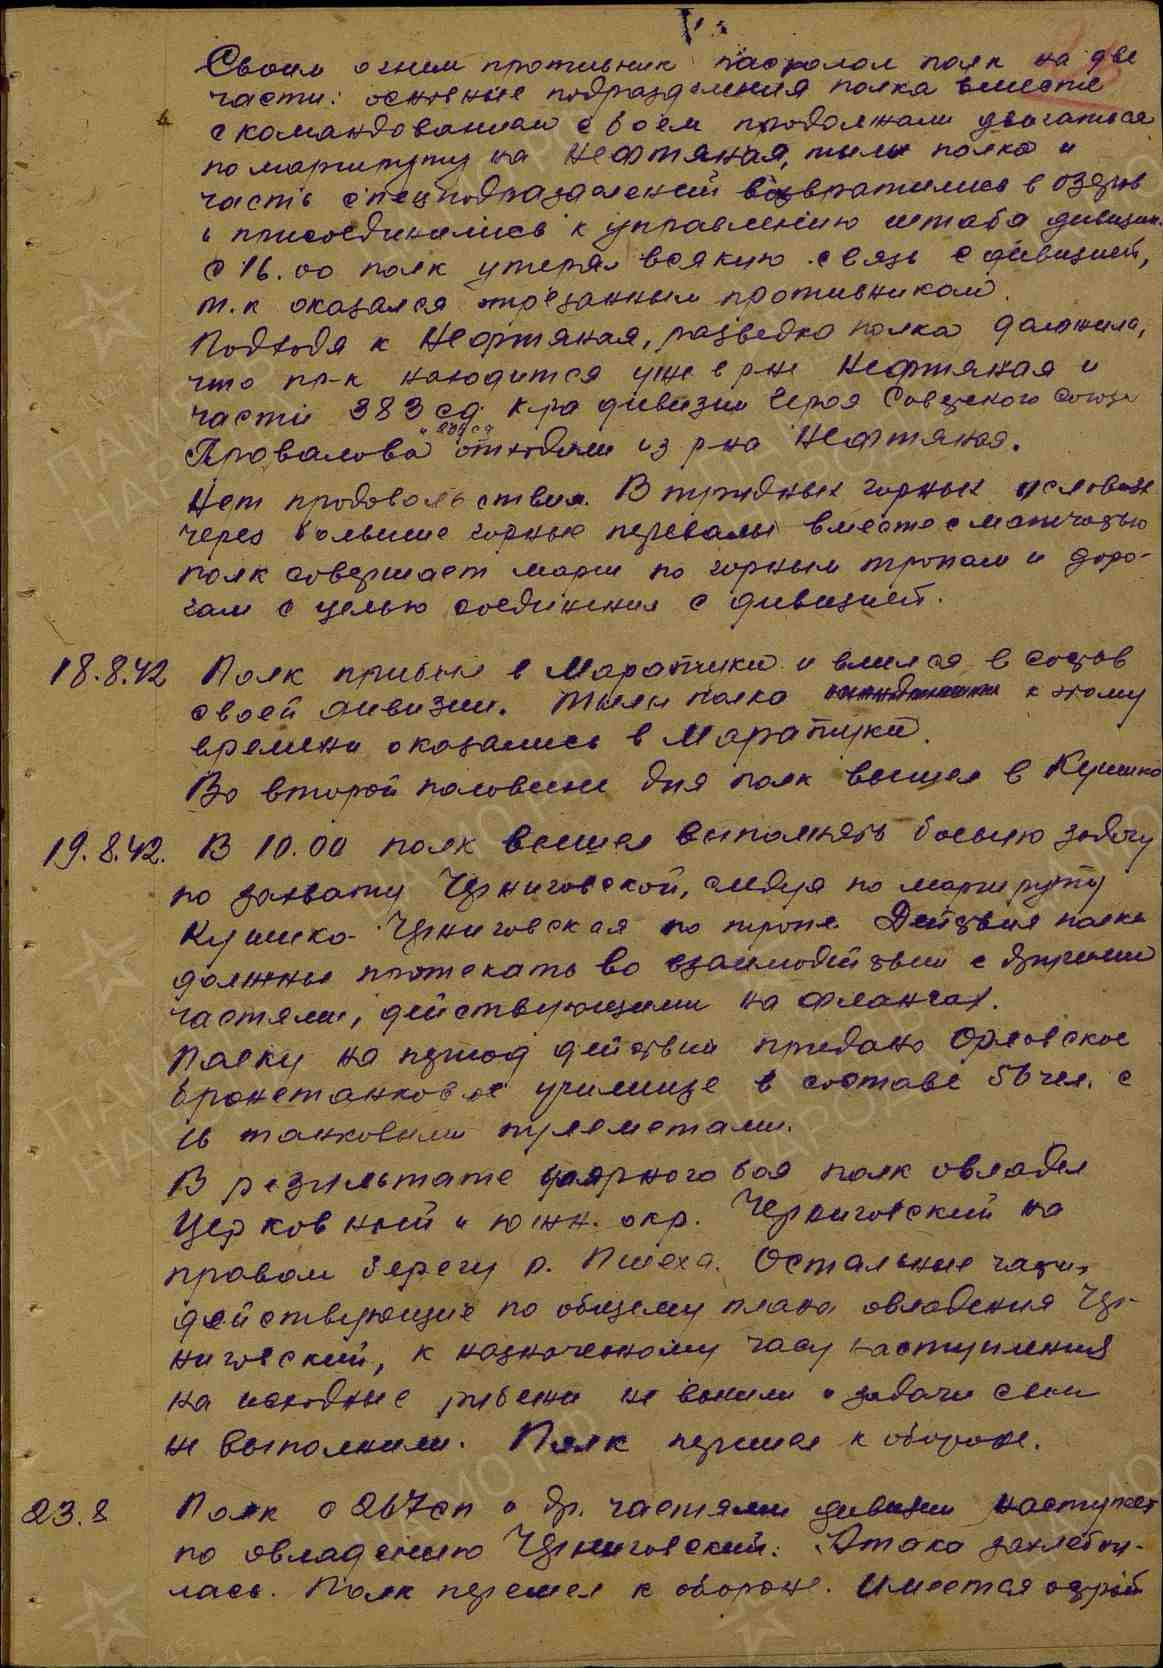 Своим огнем противник расколол полк на две
части: основные подразделения полка вместе
с командованием своем продолжали двигаться
по маршруту на Нефтяная, тылы полка и
часть спецподразделений возвратились в
и присоединились к управлению штаба дивизии.
С 16.00 полк утерял всякую связь с дивизией,
т.к оказался отрезанным противником.
Подходя к Нефтяная, разведка полка донесла,
что пр-к находится уже в р-не Нефтяная и
части 383 сд к-ра дивизии Героя Советского Союза
Провалова отходят из р-на Нефтяная.
Нет продовольствия. В трудных горных условиях
через большие горные перевалы вместе с матчастью
полк совершает марш по горным тропам и доро-
гам с целью соединения с дивизией.
18.8.42 Полк прибыл в Маратуки и влился в состав
своей дивизии. Тылы полка к этому
времени оказались в Маратуки.
Во второй половине дня полк вышел в Кушико
19.8.42. В 10.00 полк вышел выполнять боевую задачу
по захвату Черниговской, следуя по маршруту
Кушико - Черниговская по тропе. Действия полка
должны протекать во взаимодействии с другими
частями, действующими на флангах.
Полку на период действий придано Орловское
бронетанковое училище в составе 56 чел. с
16 танковыми пулеметами.
В результате упорного боя полк овладел
Церковный и южн. окр. Черниговский на
правом берегу р. Пшеха. Остальные части,
действующие по общему плана овладения Чер-
ниговский, к назначенному часу наступления
на исходные рубежи не вышли и задачи свои
не выполнили. Полк перешел к обороне.
23.8 Полк с 267сп и др. частями дивизии наступает
по овладению Черниговский. Атака захлебну-
лась. Полк перешел к обороне. Имеется острый